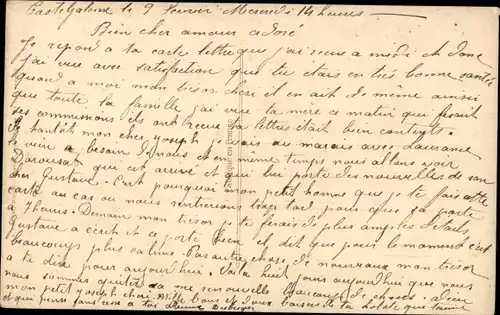 Casteljaloux le 9 Février Mercredi 14 heures
Bien cher amour adoré
Je répond a ta carte lettre que j'ai recue a midi et dont
j'ai vue avec satisfaction que tu étais en très bonne santée
quand a moi mon trésor cheri et en ait de même ainsi
que toute ta famille j'ai vue ta mère ce matin que faisait
ses commissions ils ont recue ta lettre était bien contents.
mon cher yoseph je vais au marais avec Laurance
le vieu a besoin de nous et en même temps nous allons voir
qui est arrivé et qui lui porte des nouvelles de son
cher Gustave. C'est pourquoi mon petit homme que je te fais cette
carte au cas ou nous rentrerions trop tard pour que sa parte
a 7 heures. Demain mon trésor je te ferais plus amples détails,
Gustave a écrit et ce porte bien et dit que pour le moment c'est
beaucoup plus calme. Pas autre chose de nouveaux mon trésor
a te dire pour aujourd'hui. Voila huit jours aujourd'hui que nous
nous sommes quitter sa me renouvelle beaucoup de choses. adieu
mon petit yoseph cheri mille bons et doux baisers de ta qui t'aime
et qui pense sans cesse a toi